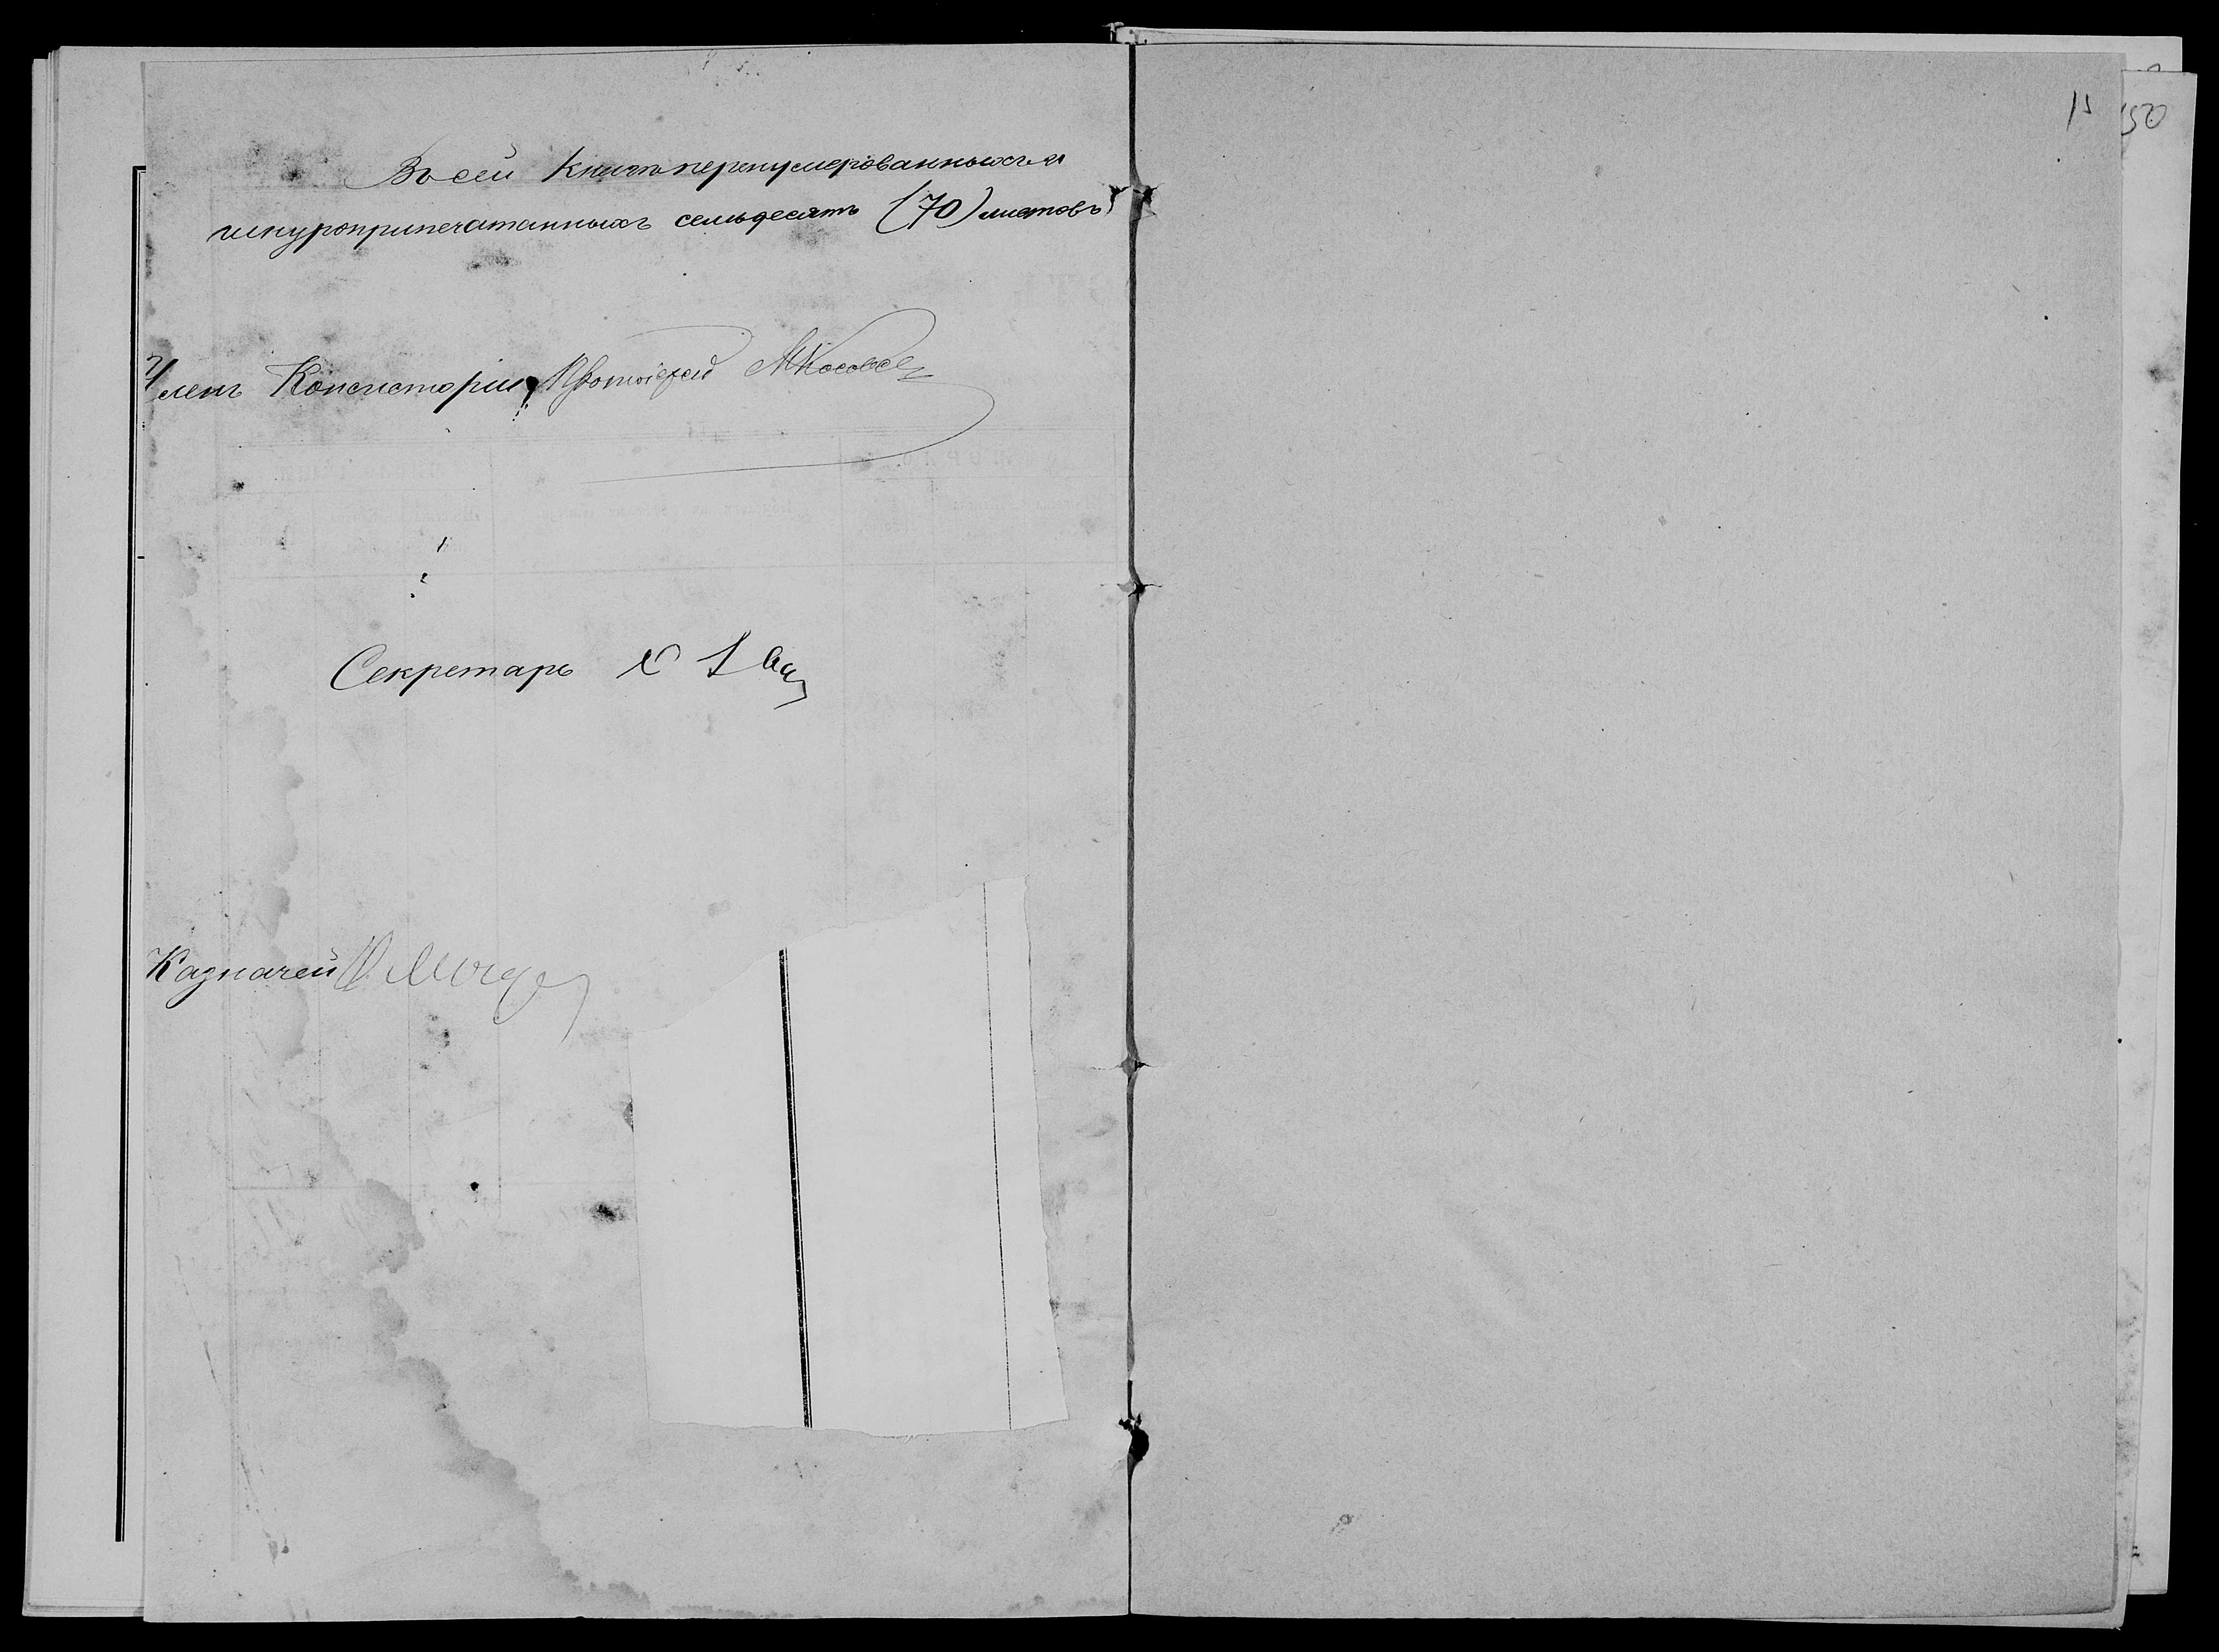 Въ сей книгѣ перенумерованныхъ и
шнуроприпечатанныхъ семьдесятъ (70) листовъ
Членъ Консисторіи, Протоіерей
Секретарь
Казначей
50